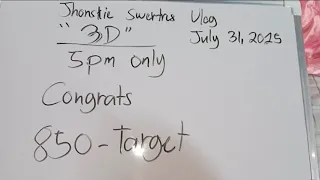 Jhonskie Swertres Vlog
"3D" July 31, 2025
5pm only
Congrats
850-Target